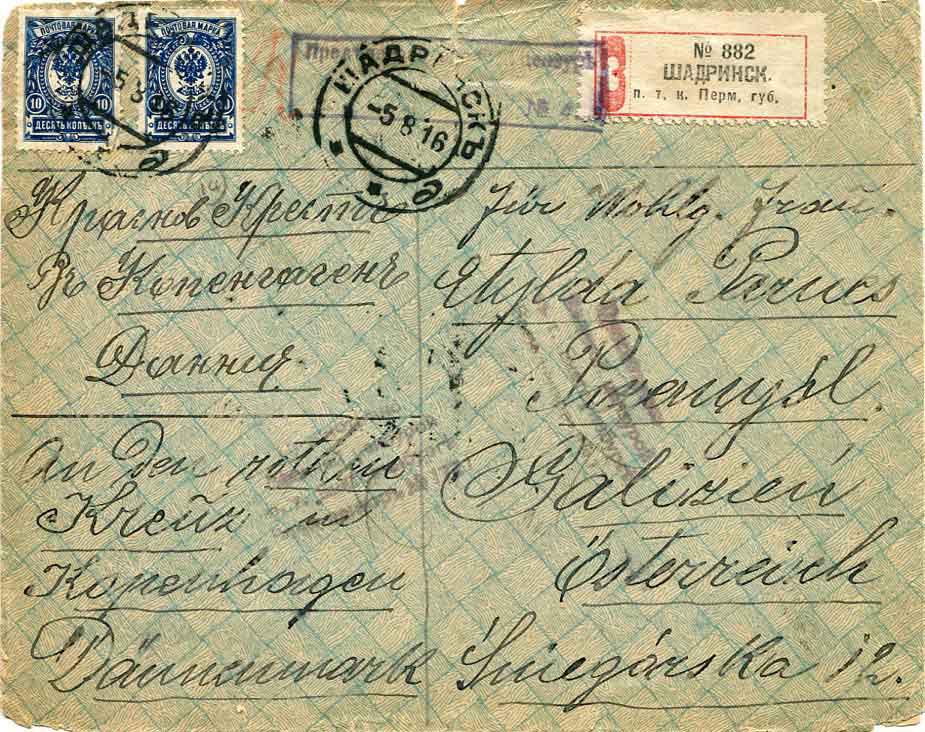 ПОЧТОВАЯ МАРКА ПОЧТОВАЯ МАРКА
10 10
ДЕСЯТЬ КОПѢЕКЪ ДЕСЯТЬ КОПѢЕКЪ
ШАДРИНСКЪ
-5 8 16
№ 882
ШАДРИНСК.
п. т. к. Перм. губ.
З
Красной Крестъ
Въ Копенгагенъ
Данния
An den rothen
Kreuz in
Kopenhagen
Dännemark
Für Wohlg. Frau
Etylda
Przemyśl
Galizien
Österreich
Śniegórska 12.